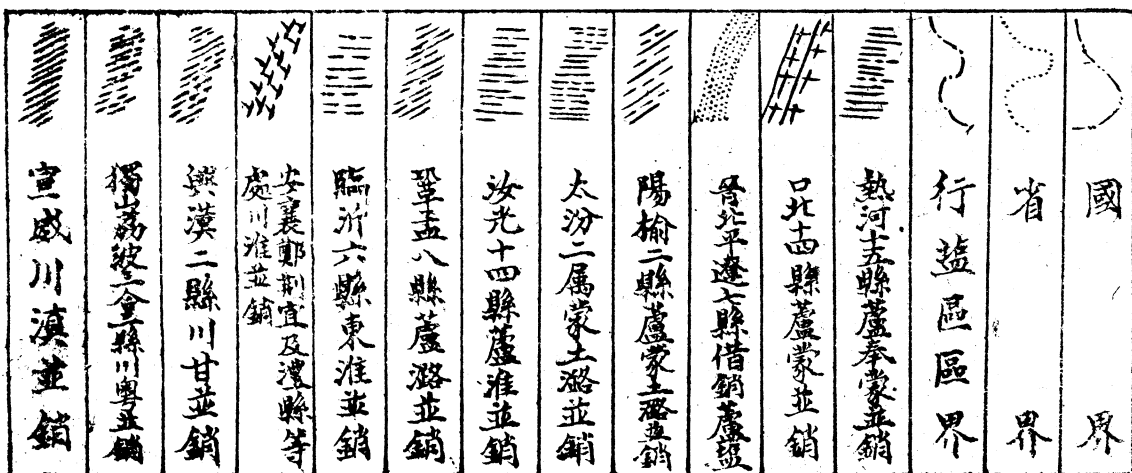 國界
省界
行盐區區界
熱河十五縣蘆奉蒙並銷
口北十四縣蘆蒙並銷
晉北平遼七縣借銷蘆盐
陽榆二縣蘆蒙土潞並銷
太汾二属蒙土潞並銷
汝光十四縣蘆淮並銷
鞏孟八縣蘆潞並銷
臨沂六縣東淮並銷
安襄鄖荆宜及澧縣等
處川淮並銷
興漢二縣川甘並銷
獨山荔波三合三縣川粤並銷
宣威川滇並銷